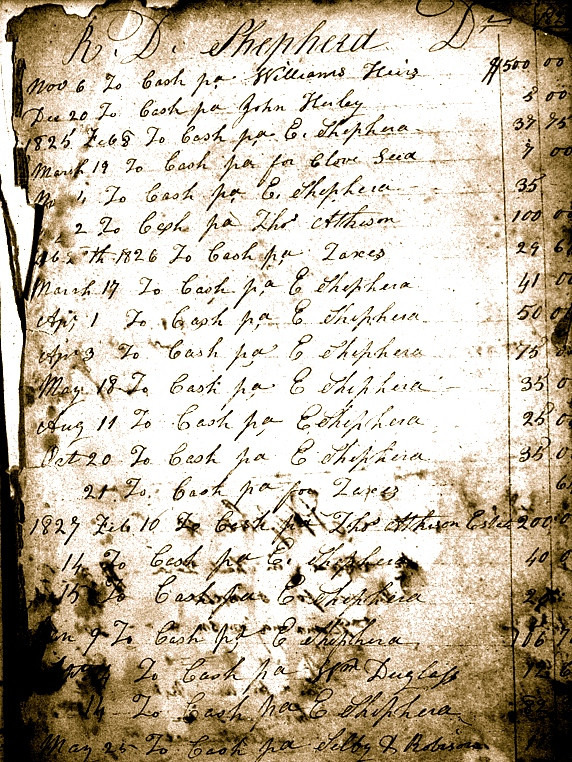 R. D. Shepherd Dr
Nov 6 To Cash pa Williams Heirs $500 00
Dec 20 To Cash pa John Hurley 5 00
1825 Feb 8 To Cash pa E. Shephera 37 75
March 19 To Cash pa for Clove Seed 7 00
1 To Cash pa E. Shephera 35
2 To Cash pa Thos Athison 100 00
1826 To Cash pa Taxes 29
March 17 To Cash pa E Shephera 41 00
Apr 1 To Cash pa E Shephera 50
Apr 3 To Cash pa E Shephera 75
May 18 To Cash pa E Shephera 35
Aug 11 To Cash pa E Shephera 25
Oct 20 To Cash pa E Shephera 35
21 To Cash pa for Taxes
1827 Feb 10 To Cash pa Thos Athison 200
14 To Cash pa E. Shephera 40
15 To Cash pa E Shephera
9 To Cash pa E Shephera
To Cash pa Wm Duglass
14 To Cash pa E Shephera
May 25 To Cash pa Selby & Robison